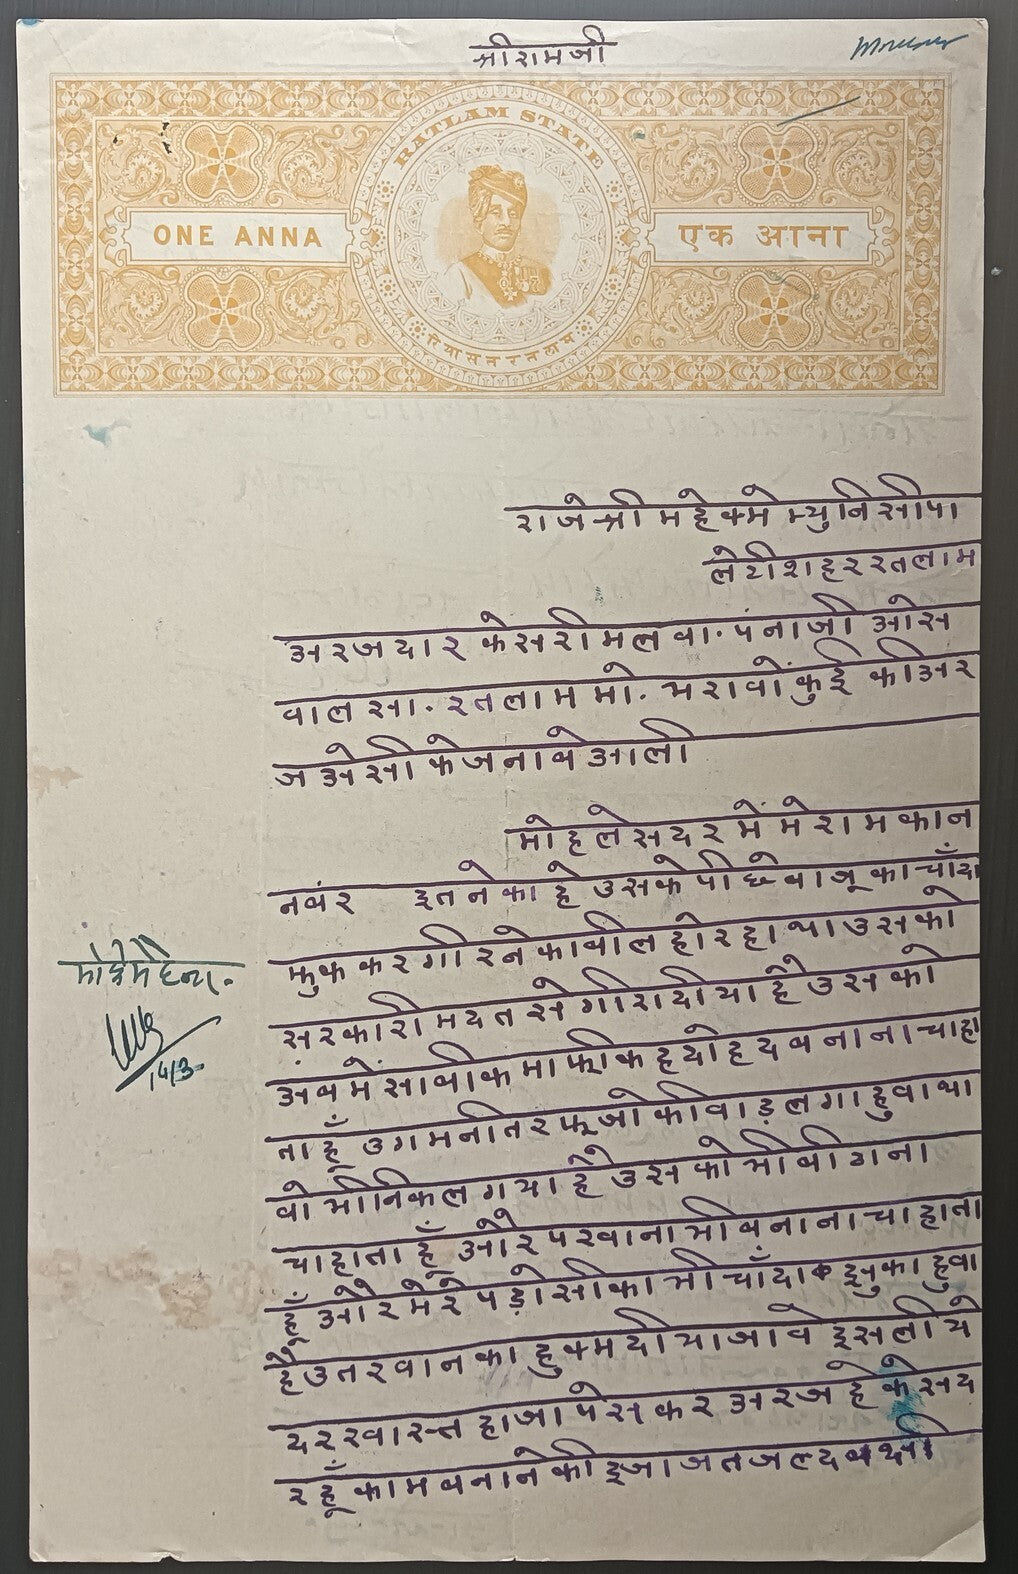 श्रीरामजी
RATLAM STATE
ONE ANNA
एक आना
रियासत रतलाम
राजेश्री महेक्मे म्युनिसीपा
लेटी शहर रतलाम
अरजदार केसरीमल वा. पंनाजी ओस
वाल सा. रतलाम मो. भरावों कुई की अर
ज अेसी के जनावे आली
मोहले सदर में मेरा मकान
नवंर इतने का हे उसके पीछे वाजू का चाँदा
झुक कर गीरने कावील हो रहा था उस को
सरकारी मदत से गीरा दीया है उस को
अव में सावीक माफीक हदो हद वनाना चाहा
ता हूँ उगमनी तरफ जो कीवाड़ लगा हुवा था
वो भी निकल गया है उस को भी वीठाना
चाहाता हूँ ओर परवाना भी वनाना चाहाता
हूँ ओर मेरे पड़ोसी का भी चाँदा झुका हुवा
है उतरवान का हुक्म दीया जावे इसलीये
दरखास्त हाजा पेस कर अरज हे के सद
रहूँ काम वनाने की इजाजत जल्द